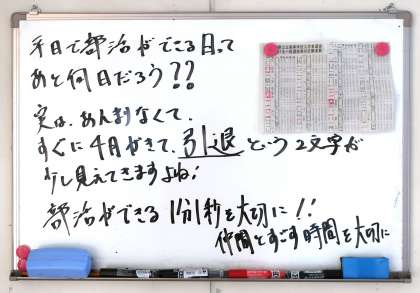 平日で部活ができる日って
あと何日だろう??
実は、あんまりなくて、
すぐに4月がきて、引退という2文字が
少し見えてきますよね!
部活ができる1分1秒を大切に!!
仲間とすごす時間を大切に